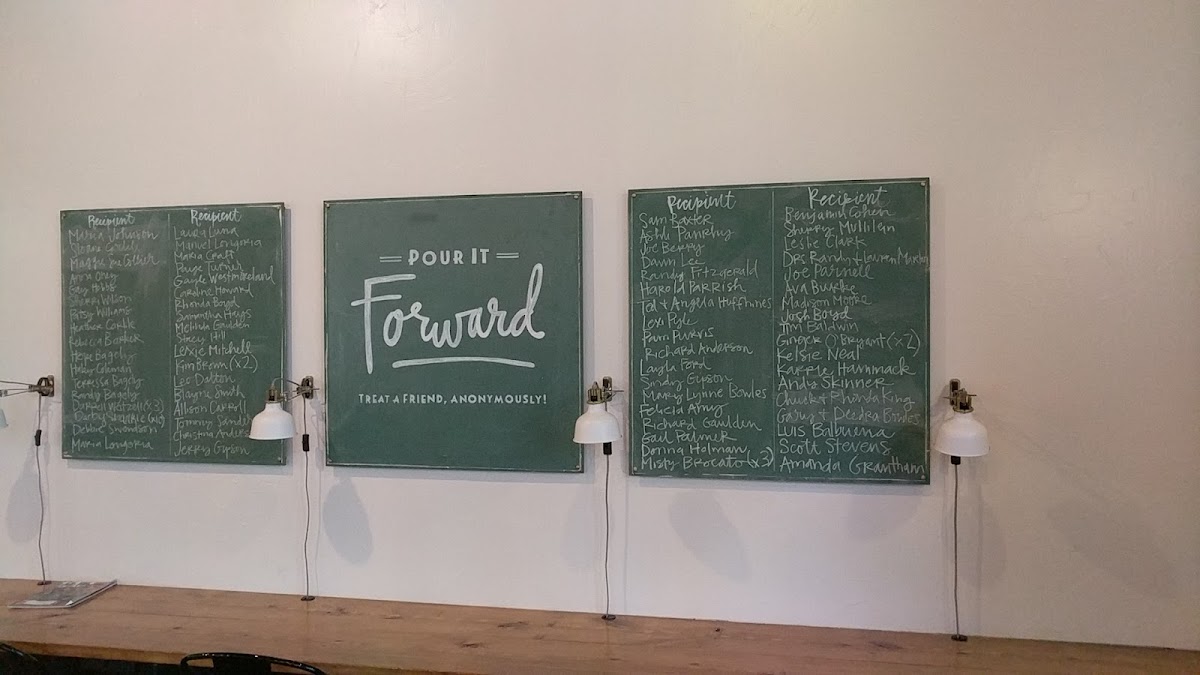 Recipient
Maria Johnson
Anna Gray
Gary Hobbs
Sherri Wilson
Betsy Williams
Heather
Rebecca Barker
Hope Bagely
Haley Coleman
Terressa Bagely
Randy Bagely
Darrell Wetzol (x3)
Debbie Swanson
Maria Longoria
Recipient
Laura Luna
Manuel Longoria
Maria Craft
Paige Turner
Gayle Westmoreland
Caroline Howard
Rhonda Boyd
Samantha Hays
Melinda Gaulden
Stacy Hill
Lexxie Mitchell
Kim Brown (x2)
Leo Dalton
Blayne Smith
Allison
Tommy
Christina
Jerry Gipson
POUR IT
Forward
TREAT A FRIEND, ANONYMOUSLY!
Recipient
Sam Baxter
Ashli
Joe Berry
Dawn Lee
Randy Fitzgerald
Harold Parrish
Ted + Angela Huffhines
Lexi Pyle
Pam Purvis
Richard Anderson
Layla Ford
Sindy Gipson
Mary Lynne Bowles
Felicia Amy
Richard Gaulden
Gail Palmer
Donna Holman
Misty Brocato (x3)
Recipient
Benjamin Cohen
Sherry Mullilen
Leslie Clark
Drs Randy + Lauren
Joe Parnell
Ava Burke
Madison Moore
Josh Boyd
Tim Baldwin
Ginger O'Bryant (x2)
Kelsie Neal
Karrie Hammack
Andy Skinner
Chuck + Rhonda King
Gary + Deedra
Luis Balbuena
Scott Stevens
Amanda Grantham